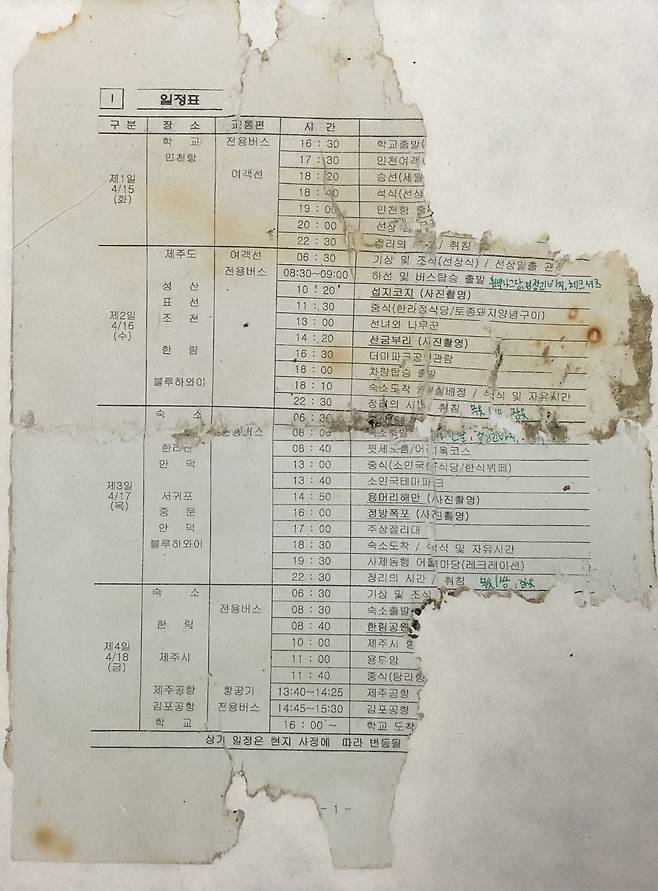 I 일정표
구 분 장 소 교통편 시 간
제1일 4/15 (화)
학 교 전용버스 16 : 30 학교출발(
인천항 17 : 30 인천여객
여객선 18 : 20 승선(세월
18 : 40 석식(선상
19 : 00 인천항 출
20 : 00 선상
22 : 30 정리의 / 취침
제2일 4/16 (수)
제주도 여객선 06 : 30 기상 및 조식(선상식) / 선상일출 관
전용버스 08:30~09:00 하선 및 버스탑승 출발
성 산 10 : 20 섭지코지 (사진촬영)
표 선 11 : 30 중식(한라정식당/토종돼지양념구이)
조 천 13 : 00 선녀와 나무꾼
14 : 20 산굼부리 (사진촬영)
한 림 16 : 30 더마파크공연관람
18 : 00 차량탑승 출발
블루하와이 18 : 10 숙소도착 실배정 / 석식 및 자유시간
22 : 30 정리의 시간 / 취침
제3일 4/17 (목)
숙 소 06 : 30
전용버스 08 : 00 숙소출발
한라산 08 : 40 윗세오름/어리목코스
안 덕 13 : 00 중식(소인국 식당/한식뷔페)
13 : 40 소인국테마파크
서귀포 14 : 50 용머리해안 (사진촬영)
중 문 16 : 00 정방폭포 (사진촬영)
안 덕 17 : 00 주상절리대
블루하와이 18 : 30 숙소도착 / 석식 및 자유시간
19 : 30 사제동행 어울마당(레크레이션)
22 : 30 정리의 시간 / 취침
제4일 4/18 (금)
숙 소 06 : 30 기상 및 조식
전용버스 08 : 30 숙소출발
한 림 08 : 40 한림공원
10 : 00 제주시
제주시 11 : 00 용두암
11 : 40 중식(탐라
제주공항 항공기 13:40~14:25 제주공항
김포공항 전용버스 14:45~15:30 김포공항
학 교 16 : 00~ 학교 도착
상기 일정은 현지 사정에 따라 변동될
- 1 -